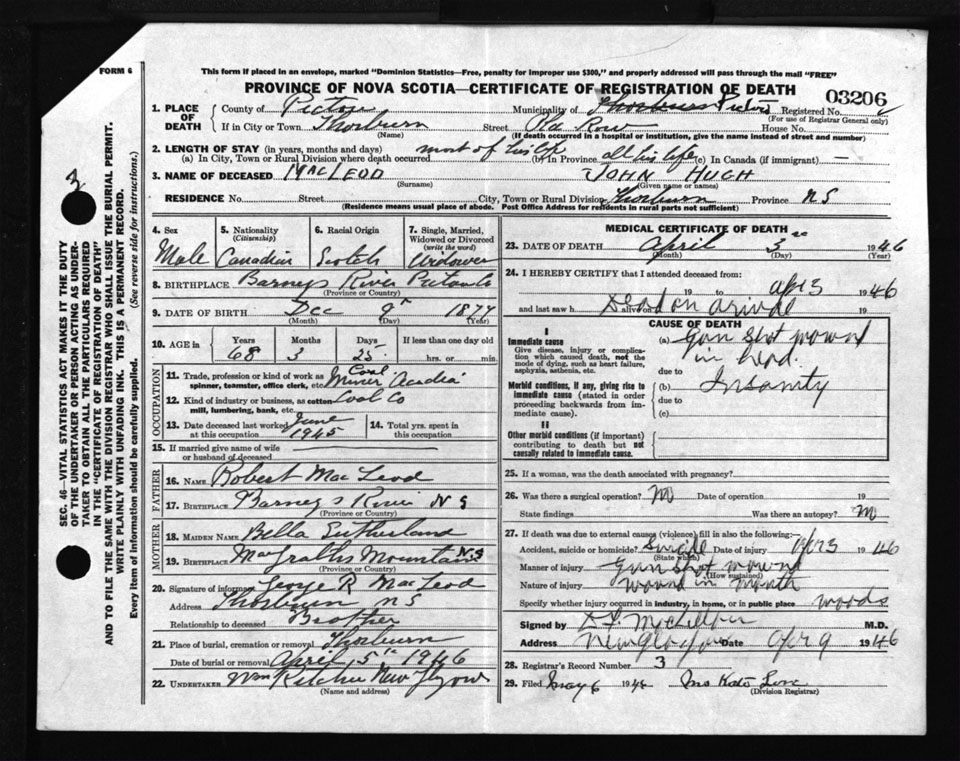 FORM 6
This form if placed in an envelope, marked "Dominion Statistics—Free, penalty for improper use $300," and properly addressed will pass through the mail "FREE"
PROVINCE OF NOVA SCOTIA—CERTIFICATE OF REGISTRATION OF DEATH
03206
1. PLACE OF DEATH County of Pictou Municipality of Pictou Registered No.
(For use of Registrar General only)
If in City or Town Thorburn (Name) Street Old Row House No.
(If death occurred in a hospital or institution, give the name instead of street and number)
2. LENGTH OF STAY (in years, months and days)
(a) In City, Town or Rural Division where death occurred most of his life (b) in Province all his life (c) in Canada (if immigrant) —
3. NAME OF DECEASED MACLEOD (Surname) JOHN HUGH (Given name or names)
RESIDENCE No. Street City, Town or Rural Division Thorburn Province NS
(Residence means usual place of abode. Post Office Address for residents in rural parts not sufficient)
4. Sex Male
5. Nationality (Citizenship) Canadian
6. Racial Origin Scotch
7. Single, Married, Widowed or Divorced (write the word) Widower
8. BIRTHPLACE Barneys River Pictou Co
(Province or Country)
9. DATE OF BIRTH Dec (Month) 9 (Day) 1877 (Year)
10. AGE in Years 68 Months 3 Days 25 If less than one day old hrs. or min.
OCCUPATION
11. Trade, profession or kind of work as spinner, teamster, office clerk, etc. Coal Miner "Acadia"
12. Kind of industry or business, as cotton mill, lumbering, bank, etc. Coal Co
13. Date deceased last worked at this occupation June 1945
14. Total yrs. spent in this occupation
15. If married give name of wife or husband of deceased
FATHER
16. NAME Robert MacLeod
17. BIRTHPLACE Barneys River NS
(Province or Country)
MOTHER
18. MAIDEN NAME Bella Sutherland
19. BIRTHPLACE Mountain NS
(Province or Country)
20. Signature of informant George R MacLeod
Address Thorburn NS
Relationship to deceased Brother
21. Place of burial, cremation or removal Thorburn
Date of burial or removal April 5th 1946
22. UNDERTAKER Wm Ritchie New Glasgow
(Name and address)
MEDICAL CERTIFICATE OF DEATH
23. DATE OF DEATH April (Month) 3 (Day) 1946 (Year)
24. I HEREBY CERTIFY that I attended deceased from:
19 to Apr 3 1946
and last saw h alive on Dead on arival 19
CAUSE OF DEATH
I
Immediate cause
Give disease, injury or complication which caused death, not the mode of dying, such as heart failure, asphyxia, asthenia, etc.
(a) Gun shot wound in head.
due to
Morbid conditions, if any, giving rise to immediate cause (stated in order proceeding backwards from immediate cause).
(b) Insanity
due to
(c)
II
Other morbid conditions (if important) contributing to death but not causally related to immediate cause.
25. If a woman, was the death associated with pregnancy?
26. Was there a surgical operation? no Date of operation 19
State findings Was there an autopsy? no
27. If death was due to external causes (violence) fill in also the following:—
Accident, suicide or homicide? Suicide (State which) Date of injury Apr 3 1946
Manner of injury Gun shot wound
(How sustained)
Nature of injury wound in mouth
Specify whether injury occurred in industry, in home, or in public place woods
Signed by M.D.
Address New Glasgow Date Apr 9 1946
28. Registrar's Record Number 3
29. Filed May 6 1946 Mrs
(Division Registrar)
SEC. 46—VITAL STATISTICS ACT MAKES IT THE DUTY
OF THE UNDERTAKER OR PERSON ACTING AS UNDER-
TAKER TO OBTAIN ALL THE PARTICULARS REQUIRED
IN THE "CERTIFICATE OF REGISTRATION OF DEATH"
AND TO FILE THE SAME WITH THE DIVISION REGISTRAR WHO SHALL ISSUE THE BURIAL PERMIT.
WRITE PLAINLY WITH UNFADING INK. THIS IS A PERMANENT RECORD.
Every item of information should be carefully supplied. (See reverse side for instructions.)